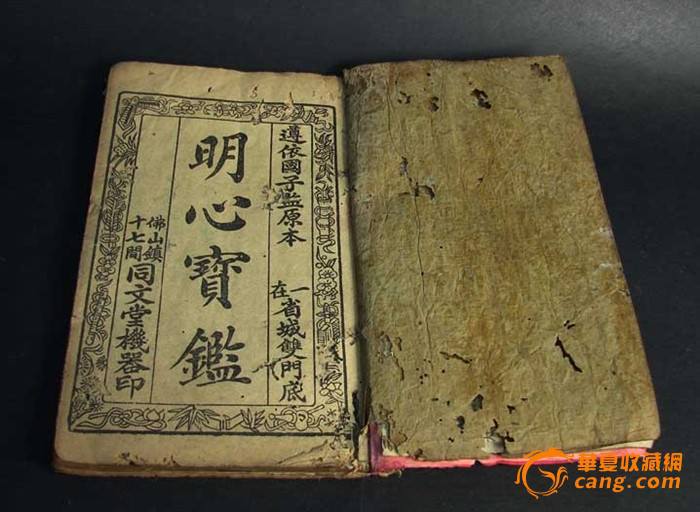 遵依國子監原本
一在省城雙門底
明心寶鑑
佛山鎮
十七間
同文堂機器印
華夏收藏網
cang.com